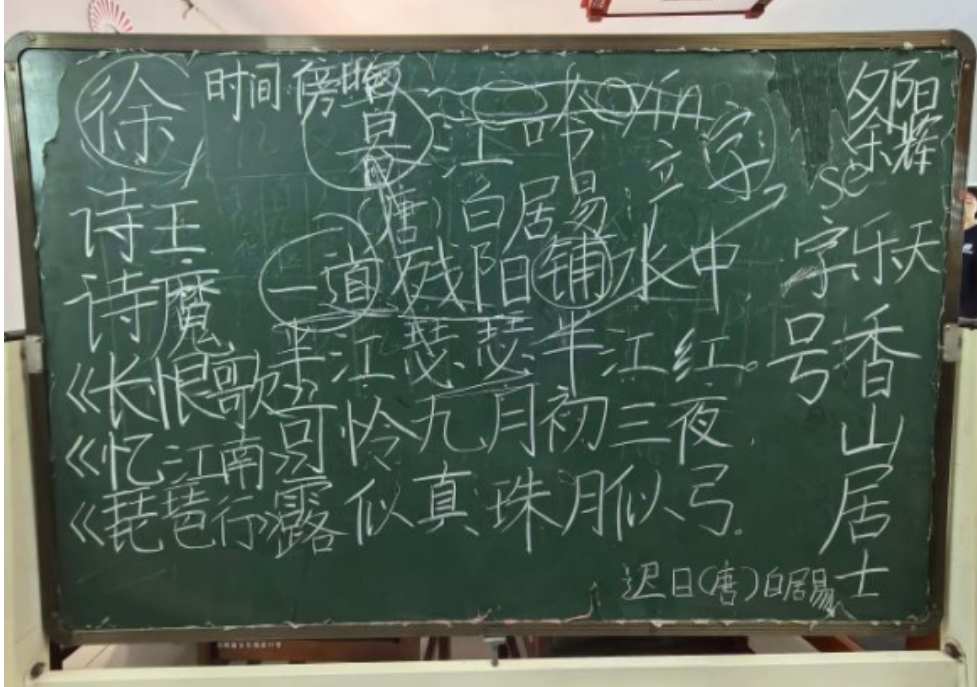 徐 时间 傍晚
暮江吟 yín 字
(唐) 白居易
一道残阳铺水中
半江瑟瑟半江红。
可怜九月初三夜,
露似真珠月似弓。
诗王
诗魔
《长恨歌》
《忆江南》
《琵琶行》
阳
辉
se
字乐天
号香山居士
迟日(唐)白居易